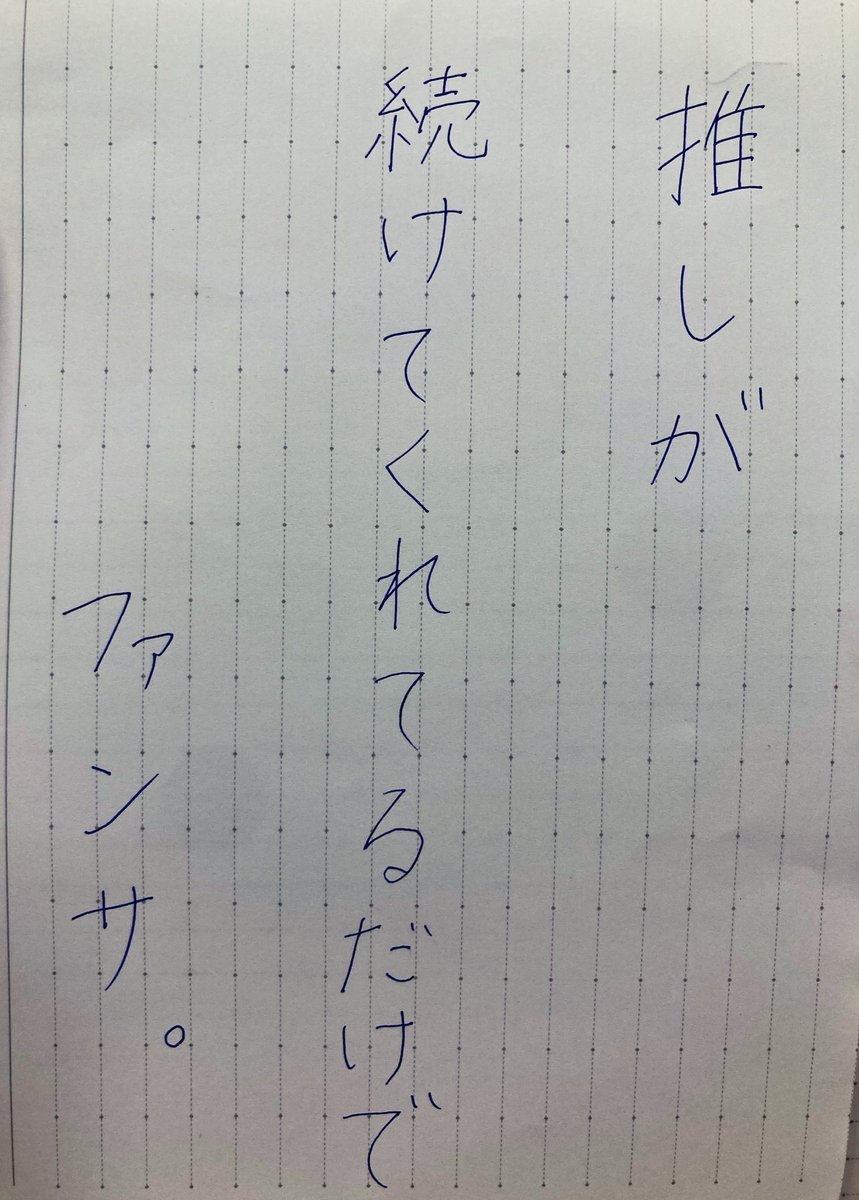 推しが
続けてくれてるだけで
ファンサ。